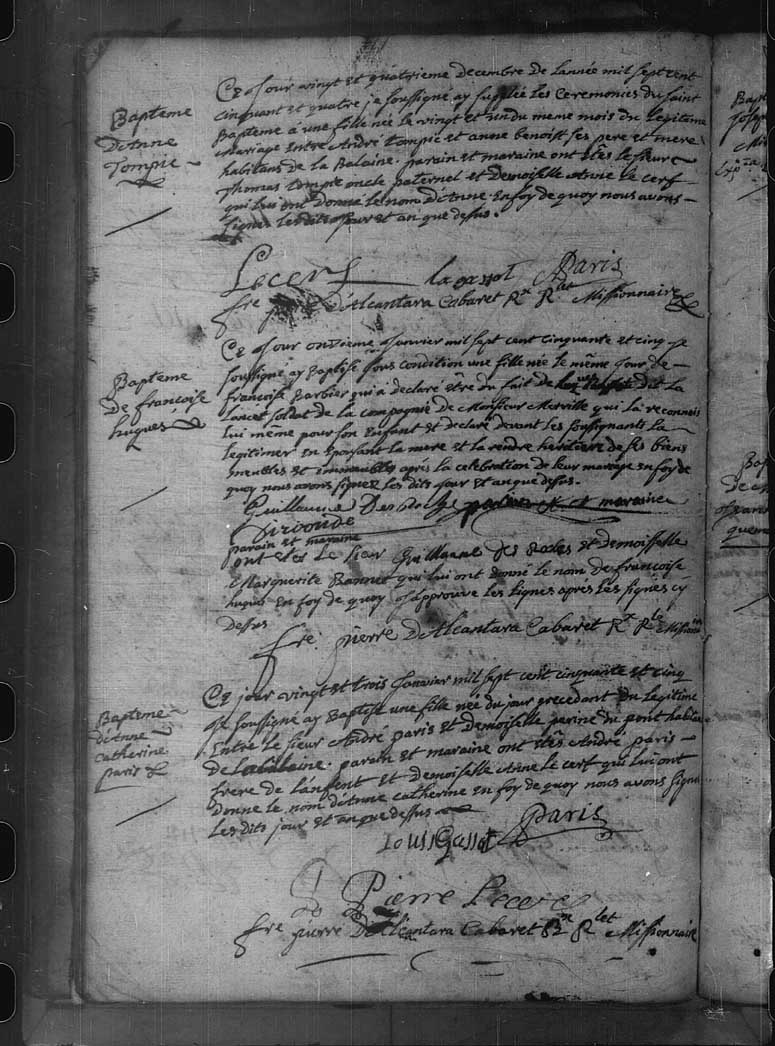 Bapteme
D'Anne
Tompic
Ce Jour vingt et quatrieme decembre de lannée mil sept cent
cinquant et quatre je soussigné ay suppléé les Ceremonies du saint
Bapteme à une fille née le vingt et un du meme mois du legitime
mariage entre André tompic et anne benoist ses pere et mere
habitans de la Balaine. parain et maraine ont étés le sieur
Thomas tompic oncle paternel et Demoiselle Anne le cerf
qui lui ont donné le nom d'Anne en foy de quoy nous avons
signés les dits Jour et an que dessus.
Lecerf la gassot Paris
fre pierre D'Alcantara Cabaret Rx Rlet Missionnaire
Bapteme
De francoise
hugues
Ce Jour onzieme Janvier mil sept cent cinquante et cinq je
soussigné ay Baptisé sous condition une fille née le même Jour de
francoise Barbier qui à declaré être du fait de dit La
lancet soldat de la compagnie de Monsieur Merville qui la reconnois
lui même pour son enfant et declare devant les soussignants la
legitimer en Epousant la mere et la rendre heritiere de ses biens
meubles et immeubles après la celebration de leur mariage en foy de
quoy nous avons signez les dits Jour et an que dessus.
Guillaume Des parain et maraine
Giroude
parain et maraine
ont étés Le sieur Guillaume des Rodes et demoiselle
Marguerite Bonnet qui lui ont donné le nom de francoise
hugues en foy de quoy J'approuve les lignes après les signés cy
Dessus
fre: pierre De Alcantara Cabaret Rx Rlet Missionn
Bapteme
d'Anne
catherine
paris
Ce jour vingt et trois Janvier mil sept cent cinquante et cinq
Je soussigné ay Baptisé une fille née du jour precedant du legitime
Entre le sieur André paris et Demoiselle perine du pont habitans
de La balaine. parain et maraine ont étés André paris
frere de l'enfent et demoiselle Anne le cerf qui lui ont
Donné le nom d'Anne catherine en foy de quoy nous avons signé
Les dits jour et an que dessus
Louis Gassot Paris
Pierre Lecerf
fre pierre D'Alcantara Cabaret Rx Rlet Missionnaire